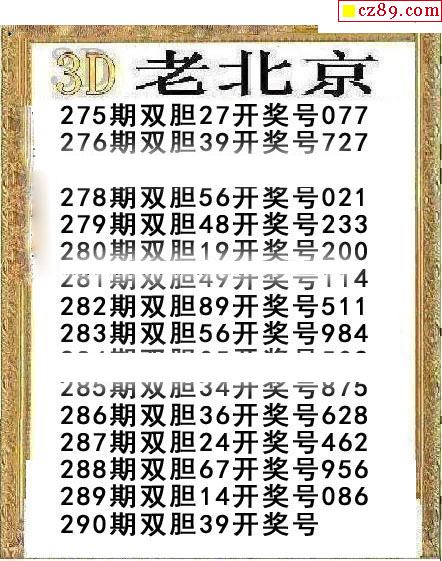 cz89.com
3D 老北京
275期双胆27开奖号077
276期双胆39开奖号727
278期双胆56开奖号021
279期双胆48开奖号233
280期双胆19开奖号200
281期双胆49开奖号114
282期双胆89开奖号511
283期双胆56开奖号984
285期双胆34开奖号875
286期双胆36开奖号628
287期双胆24开奖号462
288期双胆67开奖号956
289期双胆14开奖号086
290期双胆39开奖号